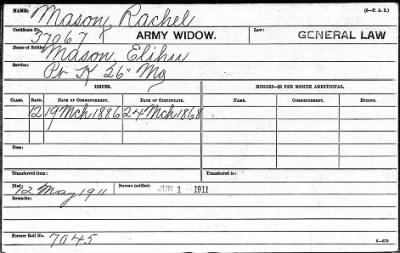 NAME: Mason, Rachel
(3-F. A. I.)
Certificate No. 37067
ARMY WIDOW.
Law:
GENERAL LAW
Name of Soldier: Mason Elihu
Service: Pr K 26" Mo
ISSUES.
MINORS—$2 PER MONTH ADDITIONAL.
CLASS. RATE. DATE OF COMMENCEMENT. DATE OF CERTIFICATE. NAME. COMMENCEMENT. ENDING.
12 19 Mch 1886 24 Mch 1868
Fees:
Transferred from:
Transferred to:
Died: 12 May 1911
Bureau notified: JUN 1 1911
Remarks:
Former Roll No. 7045